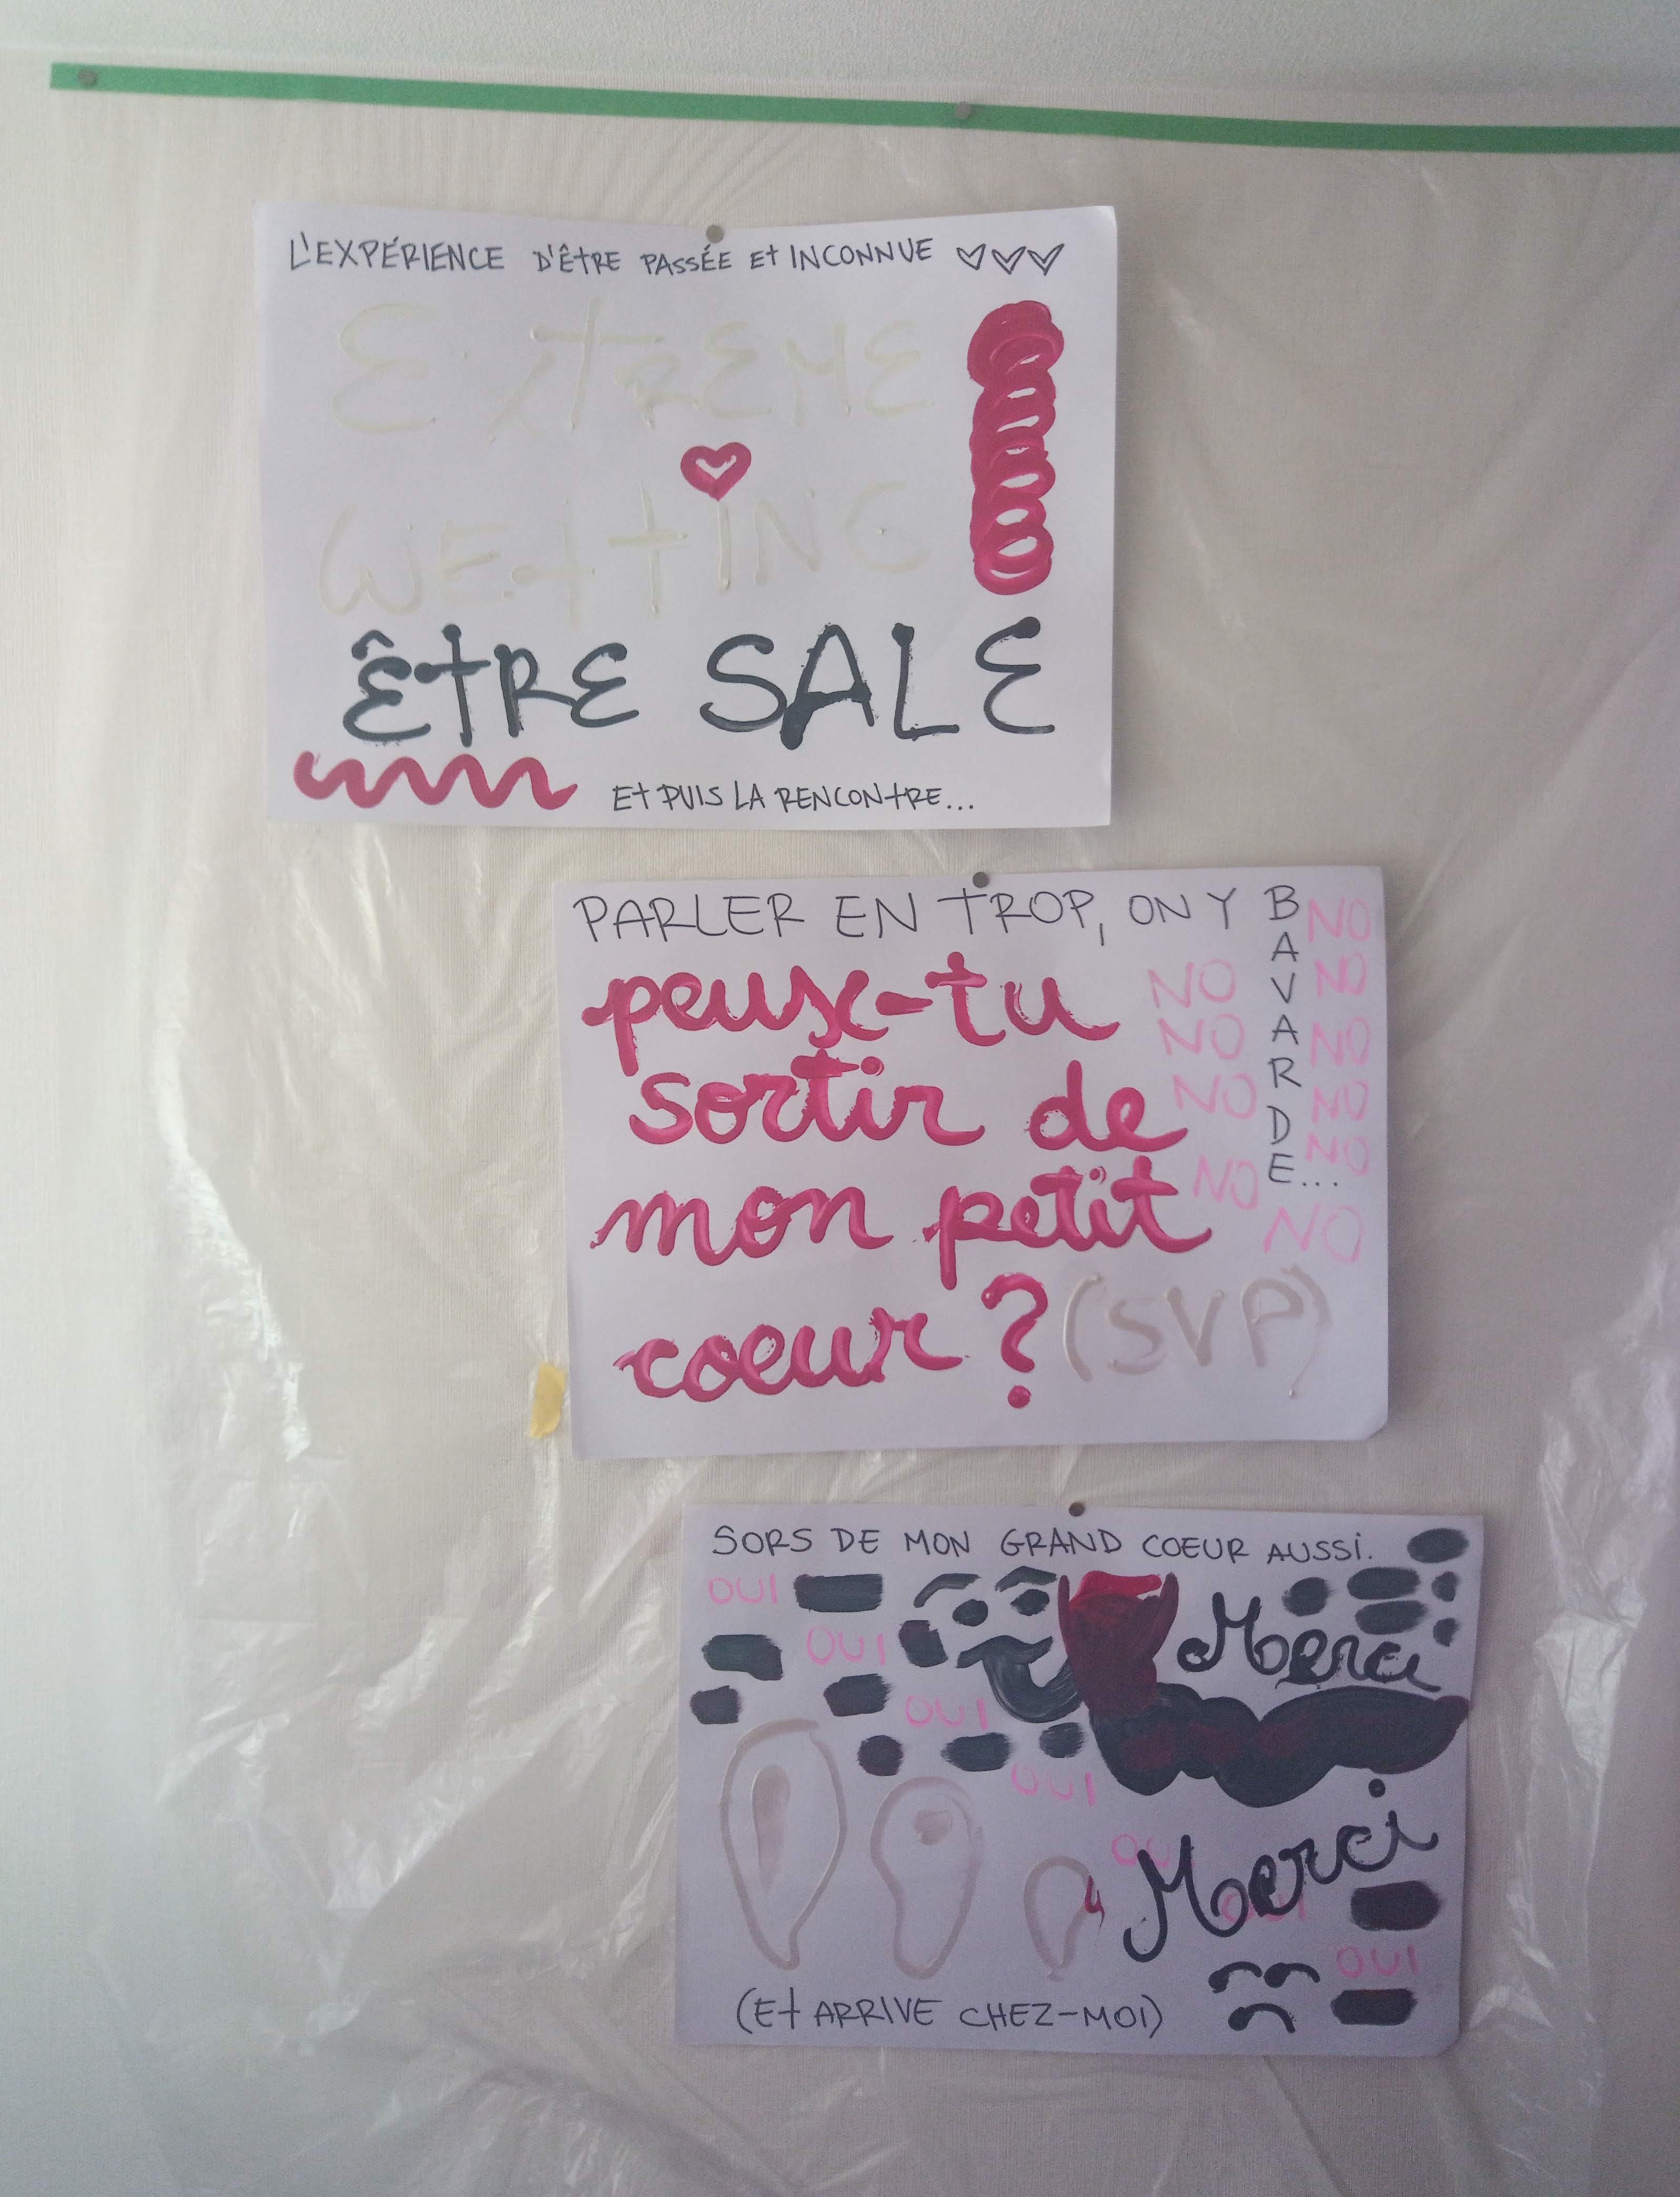 L'EXPÉRIENCE D'ÊTRE PASSÉE Et INCONNUE
EXTREME
WETTING
ÊTRE SALE
Et PUIS LA RENCONTRE...
PARLER EN TROP, ON Y BAVARDE...
NO
NO
NO
NO
NO
NO
NO
NO
NO
NO
peux-tu
sortir de
mon petit
coeur ? (SVP)
SORS DE MON GRAND COEUR AUSSI.
OUI
OUI
OUI
OUI
OUI
OUI
OUI
Merci
Merci
(Et ARRIVE CHEZ-MOI)